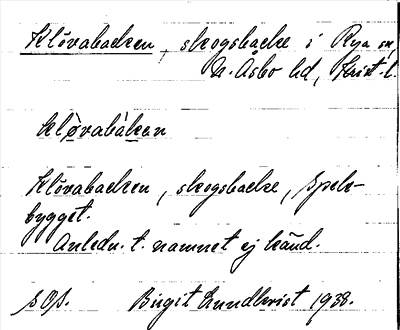 Klövabacken, skogsbacke i Rya sn,
N. Åsbo hd, Krist. l.
kløvabákan
Klövabacken, skogsbacke,
bygget.
Anledn. t. namnet ej känd.
Birgit Lundkvist 1938.